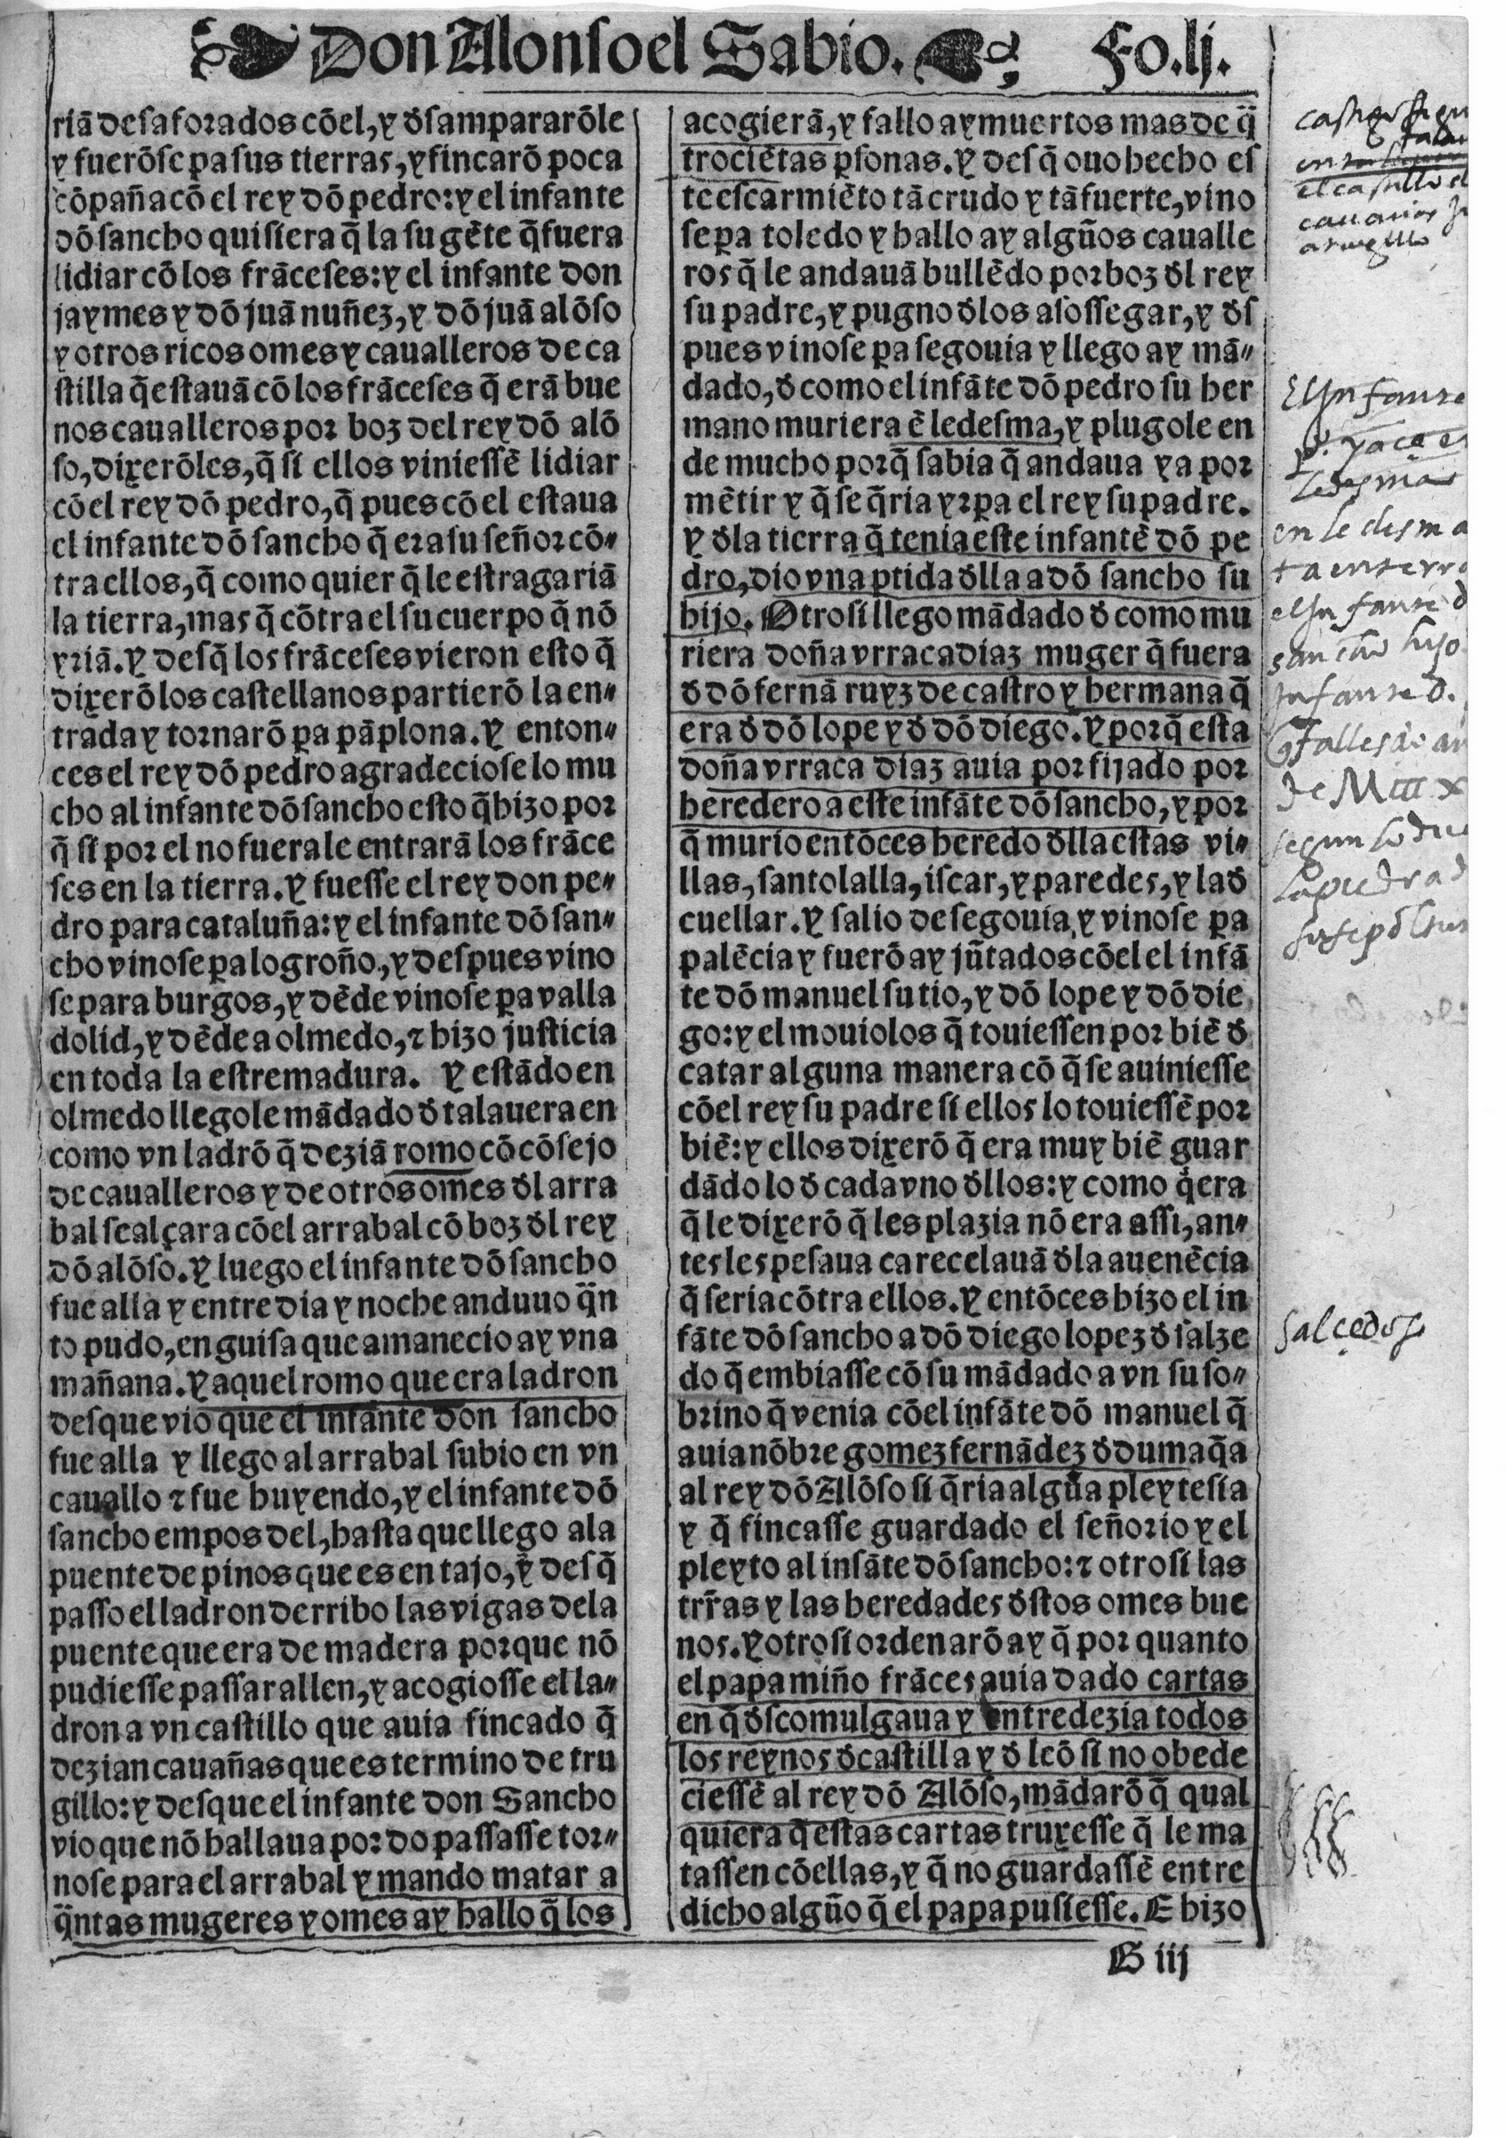 Don Alonso el Sabio. Fo.lj.
riã desaforados cõel, y d̃sampararõle
y fuerõse pa sus tierras, y fincarõ poca
cõpaña cõ el rey dõ pedro: y el infante
dõ sancho quisiera q̃ la su gẽte q̃ fuera
lidiar cõ los frãceses: y el infante don
jaymes y dõ juã nuñez, y dõ juã alõso
y otros ricos omes y caualleros de ca
stilla q̃ estauã cõ los frãceses q̃ erã bue
nos caualleros por boz del rey dõ alõ
so, dixerõles, q̃ si ellos viniessẽ lidiar
cõ el rey dõ pedro, q̃ pues cõ el estaua
el infante dõ sancho q̃ era su señor cõ-
tra ellos, q̃ como quier q̃ le estragariã
la tierra, mas q̃ cõtra el su cuerpo q̃ nõ
yriã. Y desq̃ los frãceses vieron esto q̃
dixerõ los castellanos partierõ la en-
trada y tornarõ pa pãplona. Y enton-
ces el rey dõ pedro agradeciose lo mu
cho al infante dõ sancho esto q̃ hizo por
q̃ si por el no fuera le entrarã los frãce
ses en la tierra. Y fuesse el rey don pe-
dro para cataluña: y el infante dõ san-
cho vinose pa logroño, y despues vino
se para burgos, y dẽde vinose pa valla
dolid, y dẽde a olmedo, ⁊ hizo justicia
en toda la estremadura. Y estãdo en
olmedo llegole mãdado d̃ talauera en
como vn ladrõ q̃ deziã romo cõ cõsejo
de caualleros y de otros omes d̃l arra
bal se alçara cõel arrabal cõ boz d̃l rey
dõ alõso. Y luego el infante dõ sancho
fue alla y entre dia y noche anduuo q̃n
to pudo, en guisa que amanecio ay vna
mañana. Y aquel romo que era ladron
desque vio que el infante don sancho
fue alla y llego al arrabal subio en vn
cauallo ⁊ fue huyendo, y el infante dõ
sancho empos del, hasta que llego a la
puente de pinos que es en tajo, y desq̃
passo el ladron derribo las vigas de la
puente que era de madera porque nõ
pudiesse passar allen, y acogiosse el la-
dron a vn castillo que auia fincado q̃
dezian cauañas que es termino de tru
gillo: y desque el infante don Sancho
vio que nõ hallaua por do passasse tor-
nose para el arrabal y mando matar a
q̃ntas mugeres y omes ay hallo q̃ los
acogierã, y fallo ay muertos mas de q̃
trociẽtas p̃sonas. Y desq̃ ouo hecho es
te escarmiẽto tã crudo y tã fuerte, vino
se pa toledo y hallo ay algũos caualle
ros q̃ le andauã bullẽdo por boz d̃l rey
su padre, y pugno d̃los asossegar, y d̃s
pues vinose pa segouia y llego ay mã-
dado, d̃ como el infãte dõ pedro su her
mano muriera ẽ ledesma, y plugole en
de mucho porq̃ sabia q̃ andaua ya por
mẽtir y q̃ se q̃ria yr pa el rey su padre.
Y d̃la tierra q̃ tenia este infantẽ dõ pe
dro, dio vna ptida d̃lla a dõ sancho su
hijo. Otrosi llego mãdado d̃ como mu
riera doña vrraca diaz muger q̃ fuera
d̃ dõ fernã ruyz de castro y hermana q̃
era d̃ dõ lope y d̃ dõ diego. Y porq̃ esta
doña vrraca diaz auia por fijado por
heredero a este infãte dõ sancho, y por
q̃ murio entõces heredo d̃lla estas vi-
llas, santolalla, iscar, y paredes, y la d̃
cuellar. Y salio de segouia, y vinose pa
palẽcia y fuerõ ay jũtados cõel el infã
te dõ manuel su tio, y dõ lope y dõ die
go: y el mouiolos q̃ touiessen por biẽ d̃
catar alguna manera cõ q̃ se auiniesse
cõel rey su padre si ellos lo touiessẽ por
biẽ: y ellos dixerõ q̃ era muy biẽ guar
dãdo lo d̃ cada vno d̃llos: y como q̃era
q̃ le dixerõ q̃ les plazia nõ era assi, an-
tes les pesaua ca recelauã d̃la auenẽcia
q̃ seria cõtra ellos. Y entõces hizo el in
fãte dõ sancho a dõ diego lopez d̃ salze
do q̃ embiasse cõ su mãdado a vn su so-
brino q̃ venia cõel infãte dõ manuel q̃
auia nõbre gomez fernãdez d̃ dumaq̃a
al rey dõ Alõso si q̃ria algũa pleytesia
y q̃ fincasse guardado el señorio y el
pleyto al infãte dõ sancho: ⁊ otrosi las
trr̃as y las heredades d̃stos omes bue
nos. Y otrosi ordenarõ ay q̃ por quanto
el papa miño frãces auia dado cartas
en q̃ d̃scomulgaua y entredezia todos
los reynos d̃ castilla y d̃ leõ si no obede
ciessẽ al rey dõ Alõso, mãdarõ q̃ qual
quiera q̃ estas cartas truxesse q̃ le ma
tassen cõellas, y q̃ no guardassẽ entre
dicho algũo q̃ el papa pusiesse. E hizo
G iij
el castillo
El Infante
ya ce en
Ledesma
en ledisma
el Infante d
sancho hijo
Infante d.
fallesçio
de M
segun
la piedra
Salçedos